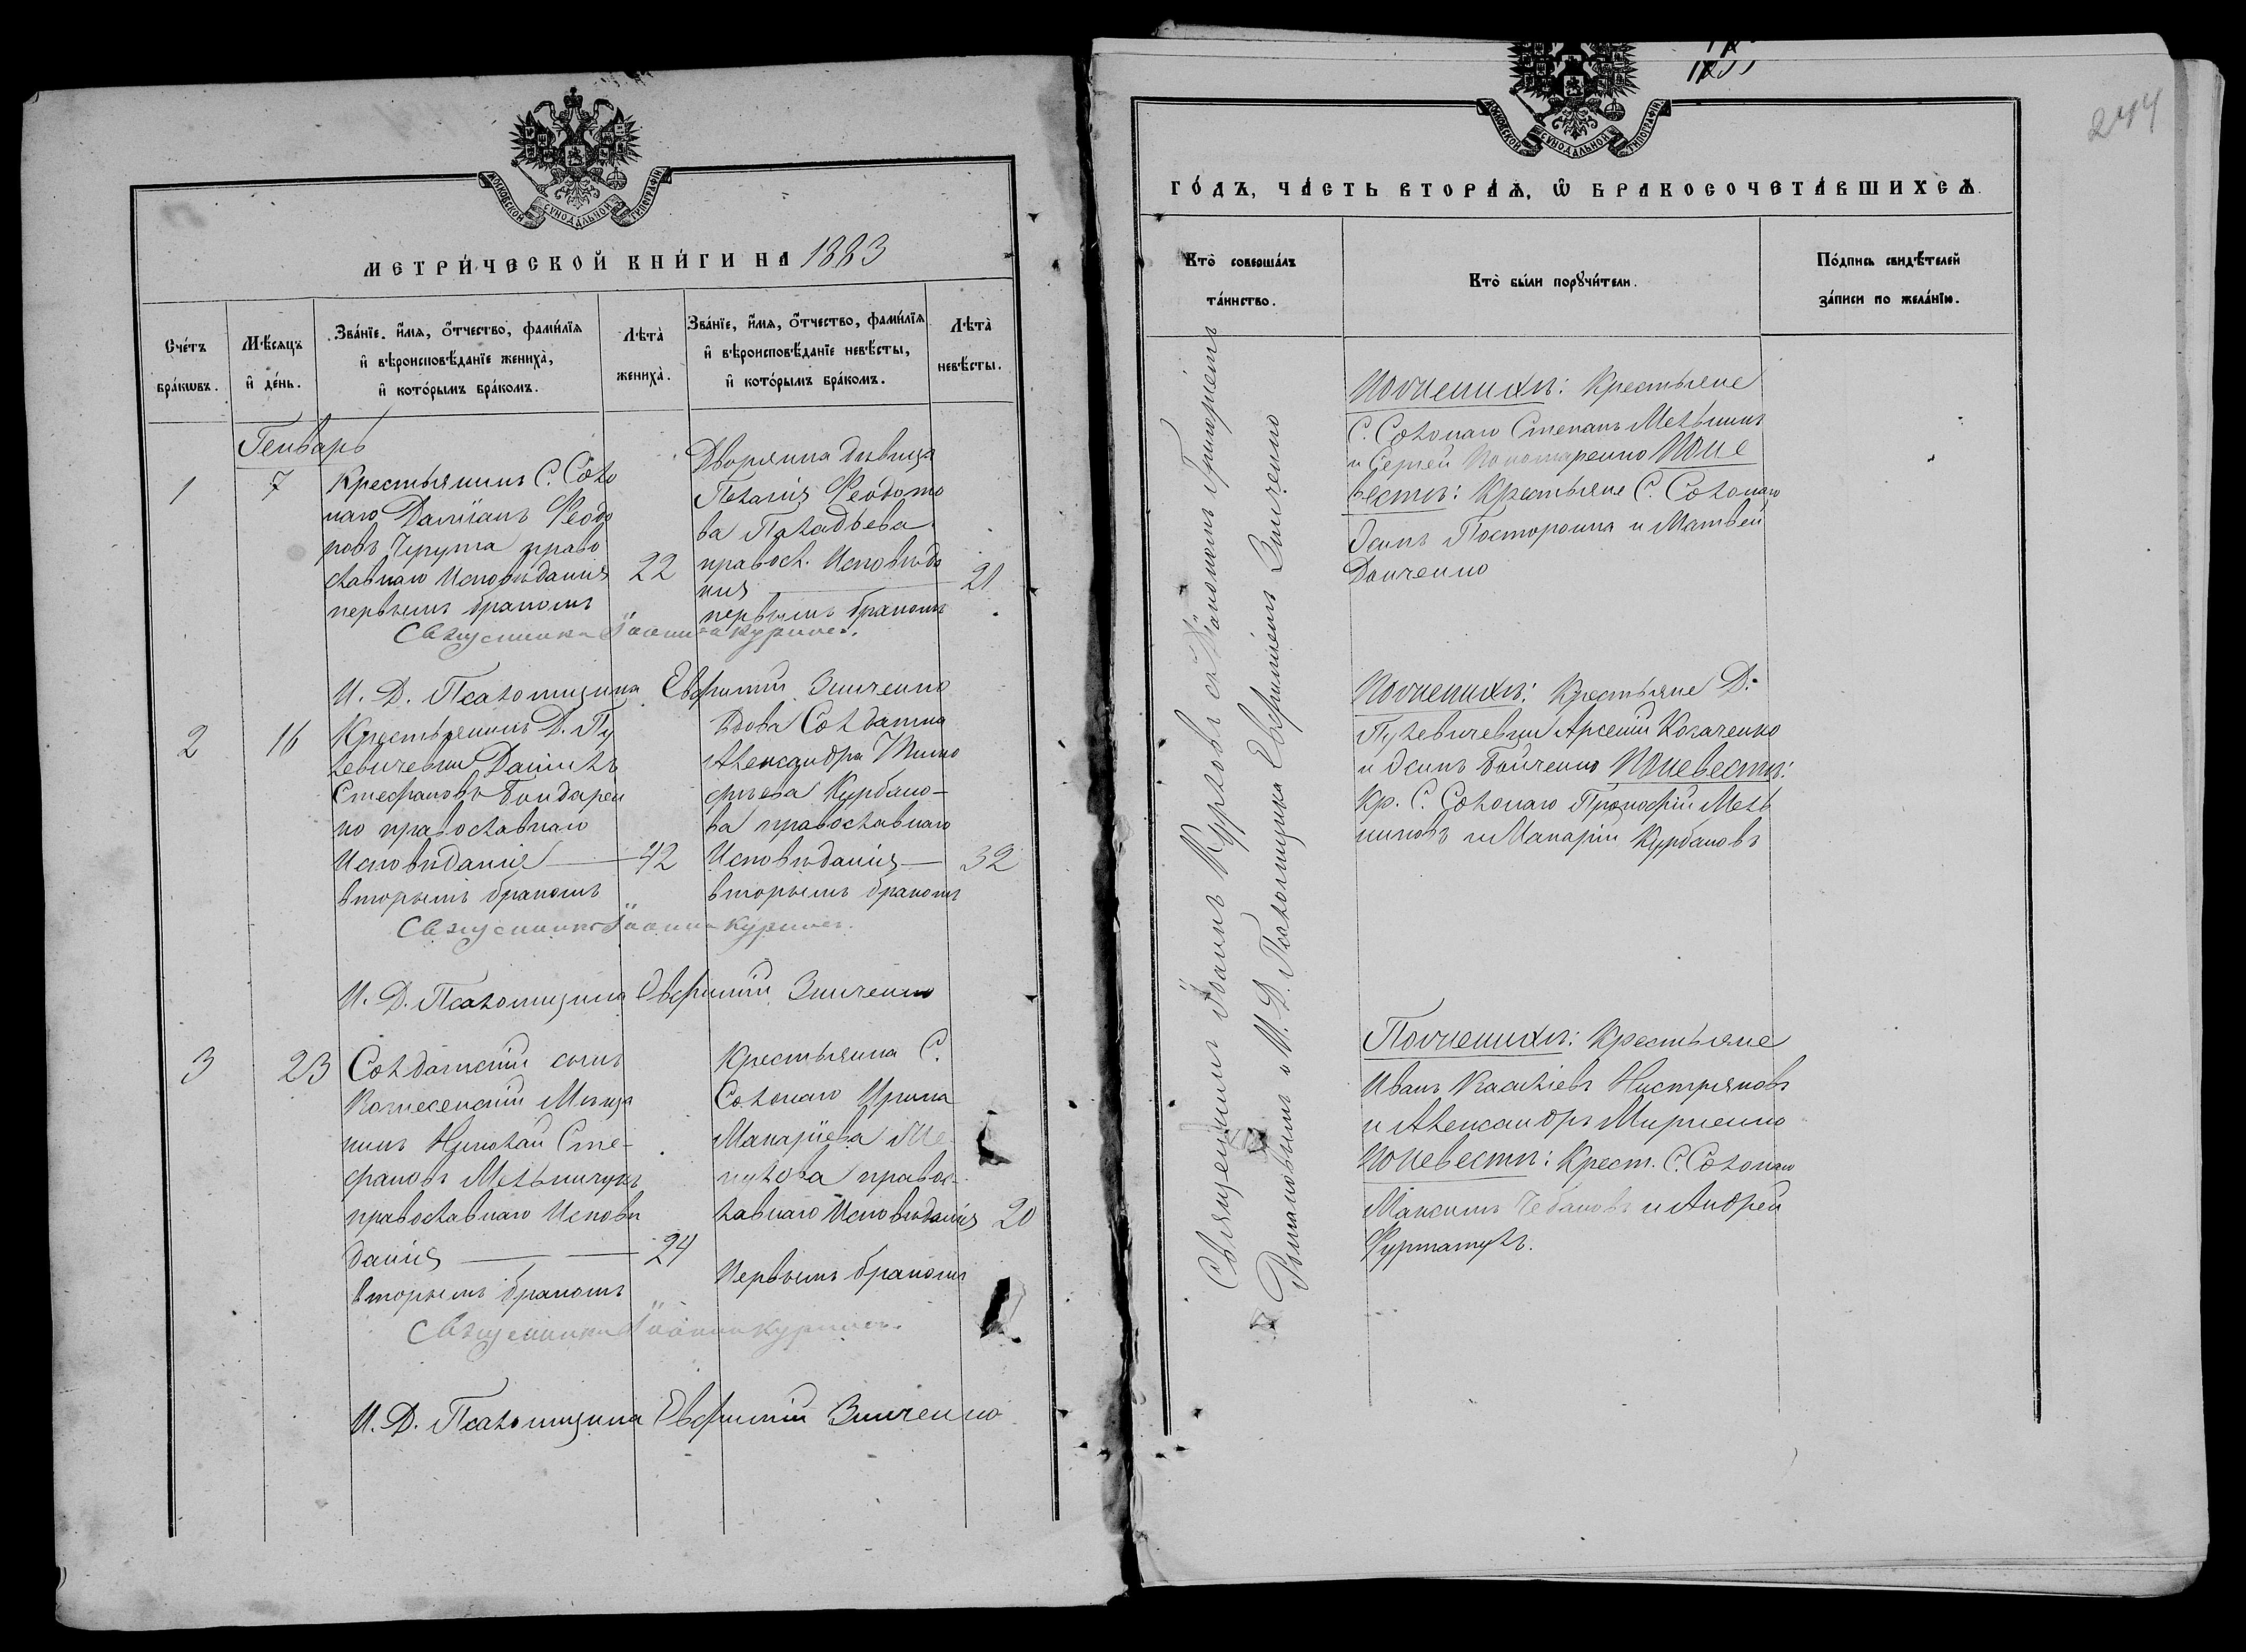 МОСКОВСКОЙ СѴНОДАЛЬНОЙ ТИПОГРАФІИ
МЕТРИ́ЧЕСКОЙ КНИ́ГИ НА 1883
Сче́тъ бра́кωвъ.
Мѣ́сяцъ и҆ де́нь.
Зва́нїе, и҆́мя, ѻ҆́тчество, фами́лїя
и҆ вѣроисповѣ́данїе жениха̀,
и҆ кото́рымъ бра́комъ.
Лѣта̀ жениха̀.
Зва́нїе, и҆́мя, ѻ҆́тчество, фами́лїя
и҆ вѣроисповѣ́данїе невѣ́сты,
и҆ кото́рымъ бра́комъ.
Лѣта̀ невѣ́сты.
Генварь
1
7
Крестьянинъ С. Соло
наго Даміанъ Феодо
ровъ Чрута право
славнаго Исповѣданія
22
первымъ бракомъ
Дворянка дѣвица
Пелагія Феодото
ва Паладьева
правосл. Исповѣда
нія
21
первымъ бракомъ
Священникъ Іоаннъ
И. Д. Псаломщика Евфимій Зинченко
2
16
Крестьянинъ Д. Пу
левичевки Даниилъ
Стефановъ Бондарен
ко православнаго
Исповѣданія
42
вторымъ бракомъ
Вдова Солдатка
Александра Тимо
фѣева Курбано-
ва православнаго
Исповѣданія
32
вторымъ бракомъ
Священникъ Іоаннъ
И. Д. Псаломщика Евфимій Зинченко
3
23
Солдатскій сынъ
Вознесенскій Мѣща
нинъ Николай Сте-
фановъ Мельничукъ
православнаго Исповѣ
данія
24
вторымъ бракомъ
Крестьянка С.
Солонаго Ирина
Макаріева
правос-
лавнаго Исповѣданія
20
Первымъ бракомъ
Священникъ Іоаннъ
И. Д. Псаломщика Евфимій Зинченко
244
МОСКОВСКОЙ СѴНОДАЛЬНОЙ ТИПОГРАФІИ
ГО́ДЪ, ЧА́СТЬ ВТОРА́Ѧ, Ѡ҆ БРАКОСОЧЕТА́ВШИХСѦ.
Кто̀ соверша́лъ
та́инство.
Кто̀ бы́ли порꙋчи́тели.
По́дпись свидѣ́телей
за́писи по жела́нїю.
Священникъ Іоаннъ съ Діакономъ Григоріемъ
Романовымъ и И. Д. Псаломщика Евфиміемъ Зинченко
Поженихѣ: Крестьяне
С. Солонаго Степанъ Мельникъ
и Сергѣй Пономаренко Поне
вестѣ: Крестьяне С. Солонаго
Осипъ Посторонка и Матвей
Донченко
Поженихѣ: Крестьяне Д.
Пулевичевки Арсеній Козаченко
и Осипъ Бойченко Поневестѣ:
Кр. С. Солонаго Прокофій Мель
никовъ и Макарій Курбановъ
Поженихѣ: Крестьяне
Иванъ Нистряновъ
и Александръ Мирненко
Поневестѣ: Крест. С. Солонаго
Максимъ Чебановъ и Андрей
Фурматулъ.